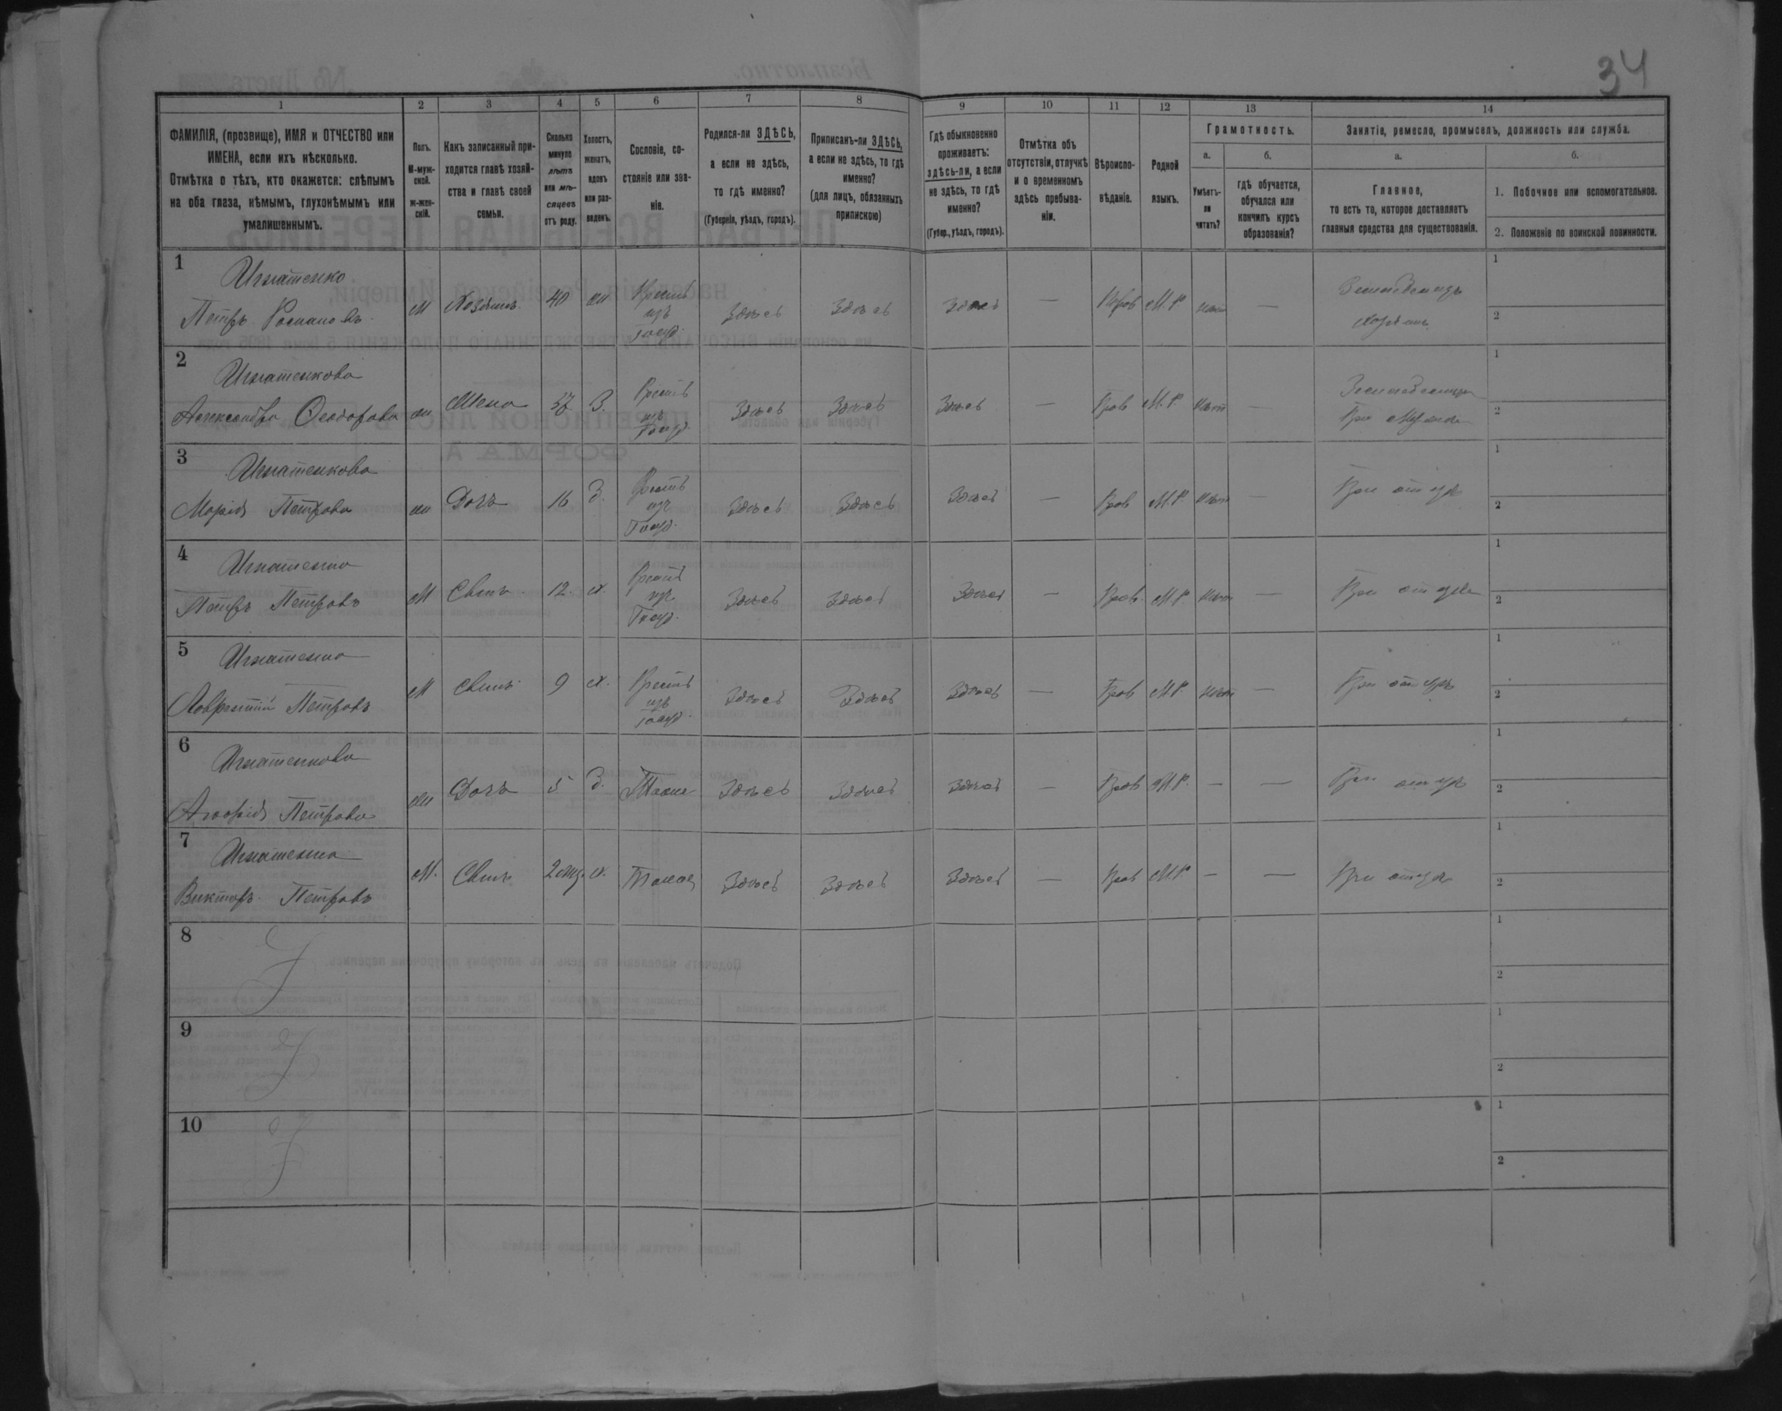 34
1 2 3 4 5 6 7 8 9 10 11 12 13 14
ФАМИЛІЯ, (прозвище), ИМЯ и ОТЧЕСТВО или
ИМЕНА, если ихъ нѣсколько.
Отмѣтка о тѣхъ, кто окажется: слѣпымъ
на оба глаза, нѣмымъ, глухонѣмымъ или
умалишеннымъ.
Полъ.
М-муж-
ской.
Ж-жен-
скій.
Какъ записанный при-
ходится главѣ хозяй-
ства и главѣ своей
семьи.
Сколько
минуло
лѣтъ
или мѣ-
сяцевъ
отъ роду.
Холостъ,
женатъ,
вдовъ
или раз-
веденъ.
Сословіе, со-
стояніе или зва-
ніе.
Родился-ли ЗДѢСЬ,
а если не здѣсь,
то гдѣ именно?
(Губернія, уѣздъ, городъ).
Приписанъ-ли ЗДѢСЬ,
а если не здѣсь, то гдѣ
именно?
(для лицъ, обязанныхъ
припискою)
Гдѣ обыкновенно
проживаетъ:
здѣсь-ли, а если
не здѣсь, то гдѣ
именно?
(Губер., уѣздъ, городъ).
Отмѣтка объ
отсутствіи, отлучкѣ
и о временномъ
здѣсь пребыва-
ніи.
Вѣроиспо-
вѣданіе.
Родной
языкъ.
Грамотность.
а.
Умѣетъ-
ли
читать?
б.
гдѣ обучается,
обучался или
кончилъ курсъ
образованія?
Занятія, ремесло, промыселъ, должность или служба.
а.
Главное,
то есть то, которое доставляетъ
главныя средства для существованія.
б.
1. Побочное или вспомогательное.
2. Положеніе по воинской повинности.
1
Игнатенко
Петръ Романовъ М Хозяинъ 40 ж Крест изъ Госуд. Здѣсь Здѣсь Здѣсь — Прав М.Р. нѣтъ — Земледѣлецъ Хозяинъ
1
2
2
Игнатенкова
Александра Феодорова ж Жена 37 З. Крест изъ Госуд Здѣсь Здѣсь Здѣсь — Прав М.Р. нѣтъ — При мужѣ
1
2
3
Игнатенкова
Марія Петрова ж Дочь 16 д. Крест изъ Госуд. Здѣсь Здѣсь Здѣсь — Прав М.Р. нѣтъ — При отцѣ
1
2
4
Игнатенко
Петръ Петровъ М Сынъ 12 х. Крест изъ Госуд. Здѣсь Здѣсь Здѣсь — Прав. М.Р. нѣтъ — При отцѣ
1
2
5
Игнатенко
Лаврентій Петровъ М Сынъ 9 х. Крест изъ Госуд. Здѣсь Здѣсь Здѣсь — Прав М.Р. нѣтъ — При отцѣ
1
2
6
Игнатенкова
Петрова ж Дочь 5 д. Здѣсь Здѣсь Здѣсь — Прав М.Р. — — При отцѣ
1
2
7
Игнатенко
Викторъ Петровъ М. Сынъ х. Здѣсь Здѣсь Здѣсь — Прав М.Р. — — При отцѣ
1
2
8
1
2
9
1
2
10
1
2